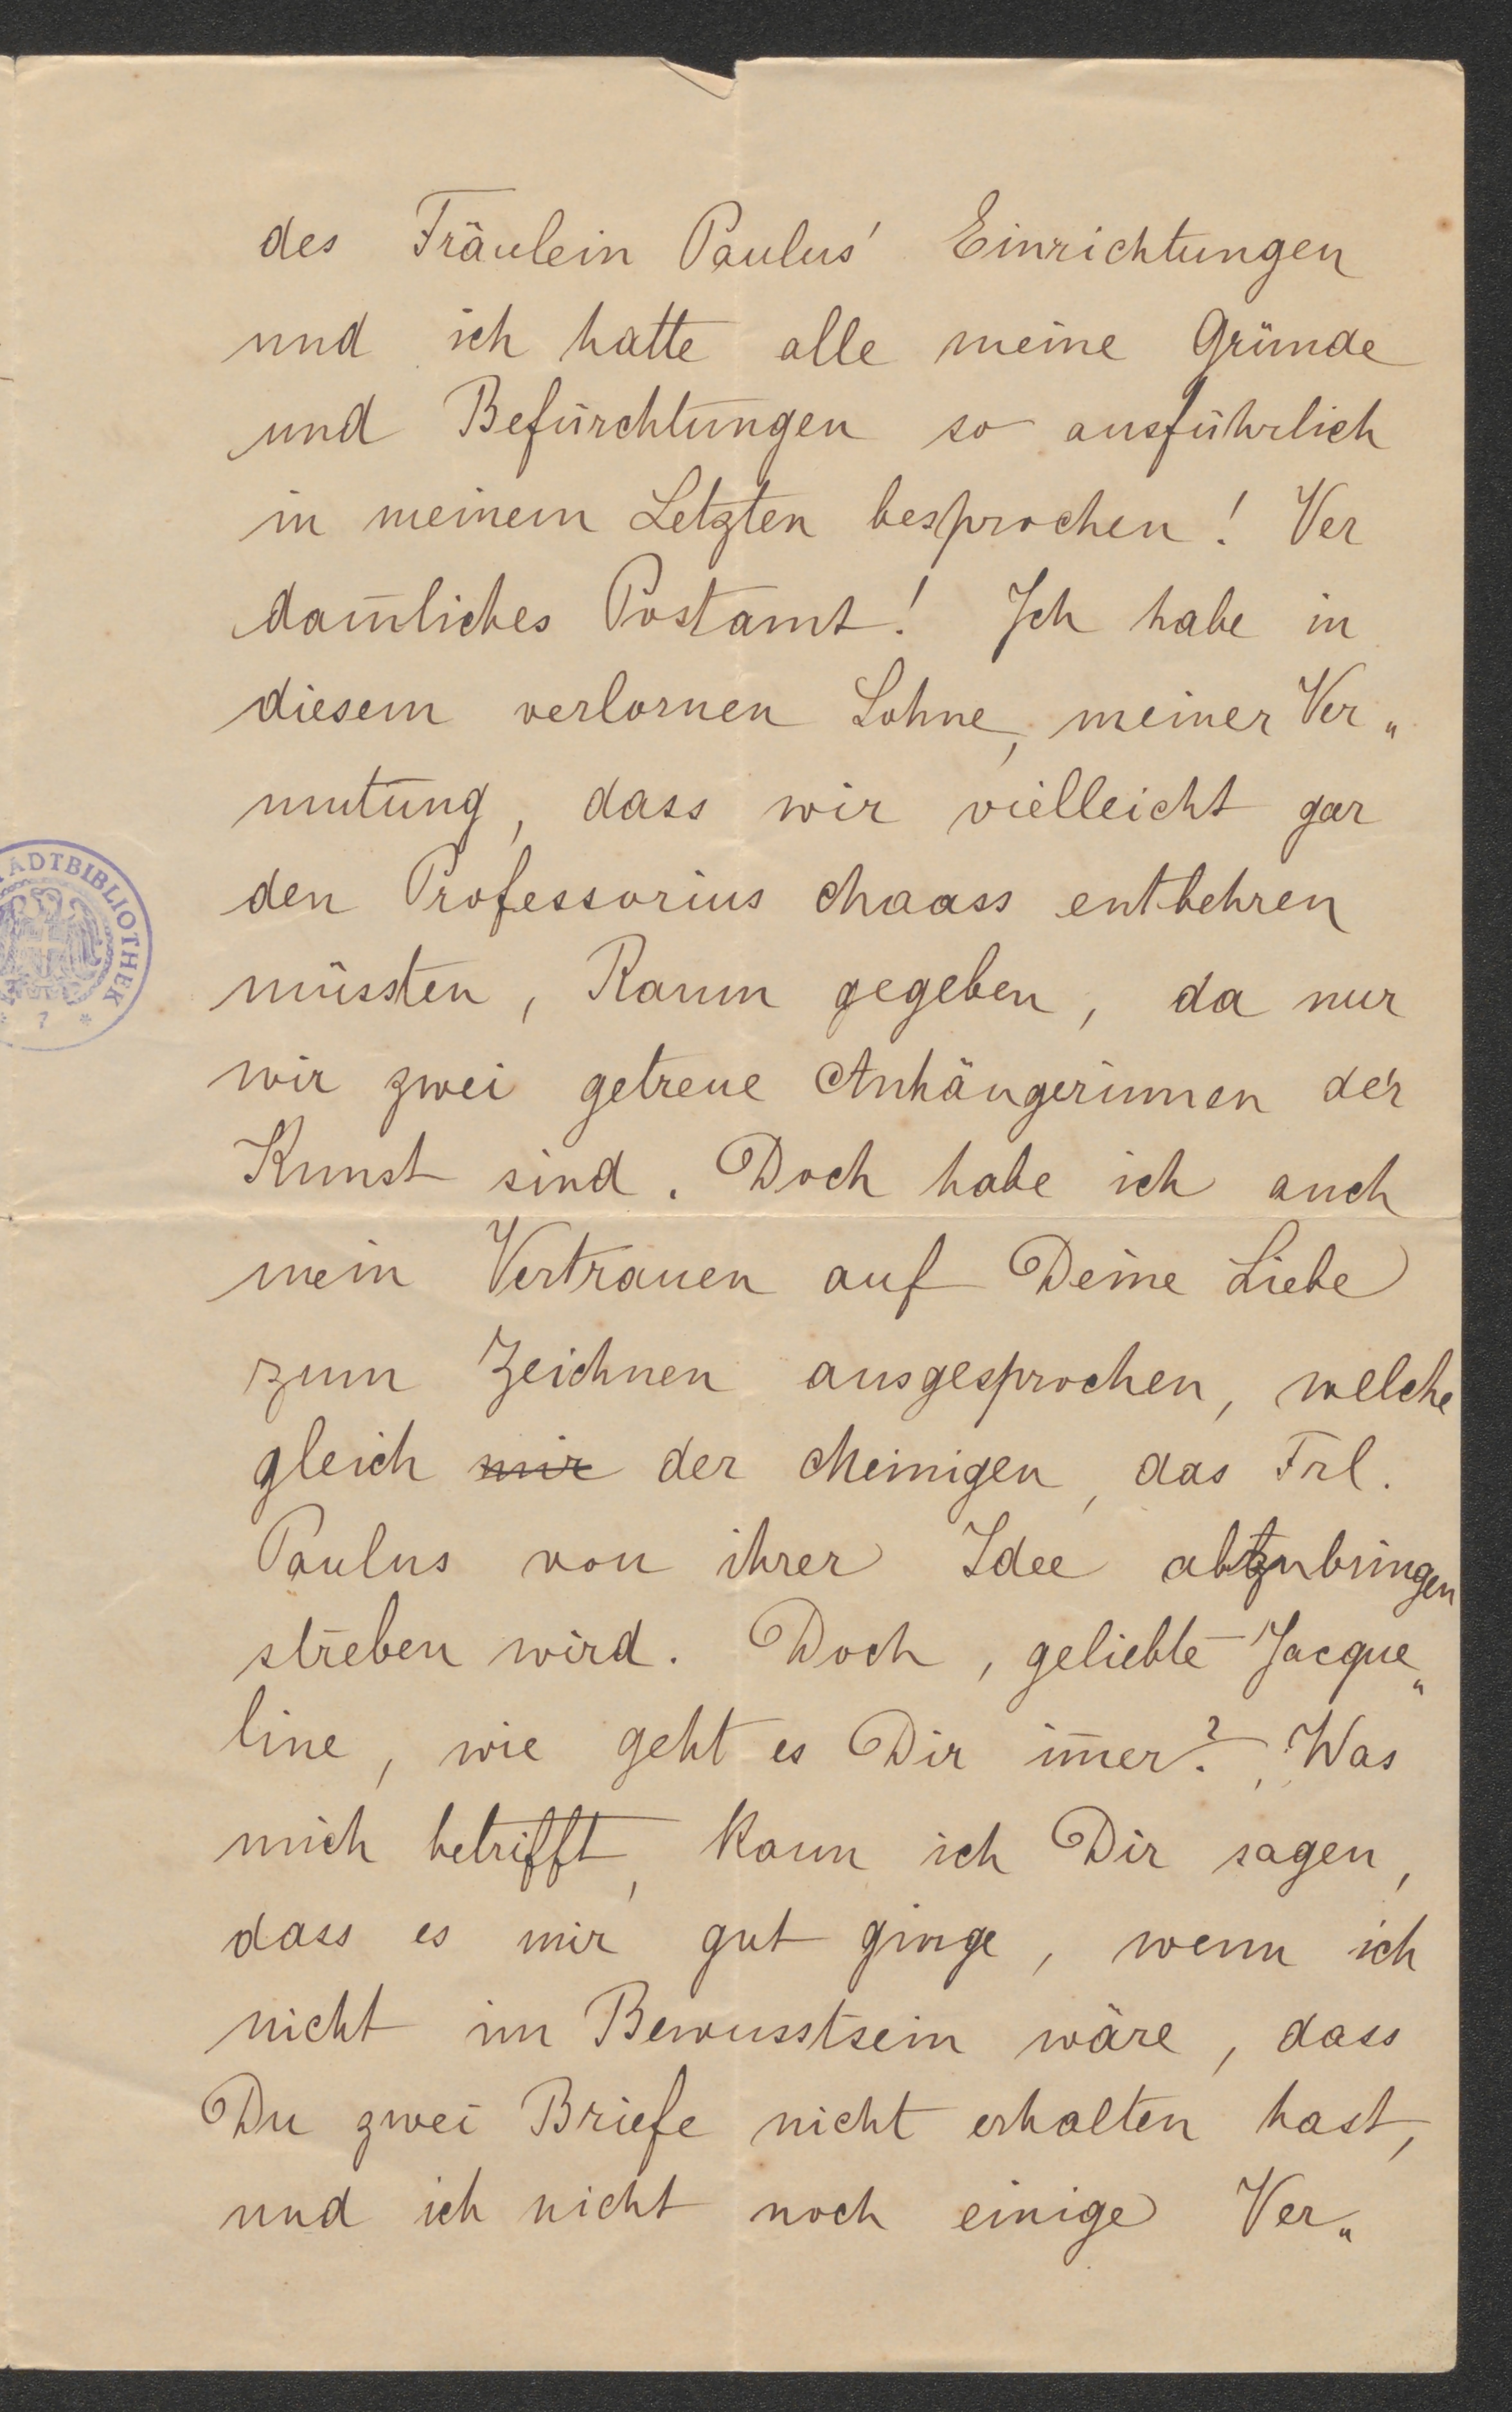 des Fräulein Paulus' Einrichtungen
und ich hatte alle meine Gründe
und Befürchtungen so ausführlich
in meinem Letzten besprochen! Ver
dam̄liches Postamt! Ich habe in
diesem verlornen Sohne, meiner Ver„
mutung, dass wir vielleicht gar
den Professorius Maass entbehren
müssten, Raum gegeben, da nur
wir zwei getreue Anhängerinnen der
Kunst sind. Doch habe ich auch
mein Vertrauen auf Deine Liebe
zum Zeichnen ausgesprochen, welche
gleich mir der Meinigen, das Frl.
Paulus von ihrer Idee abzubringen
streben wird. Doch, geliebte Jacque„
line, wie geht es Dir im̄er? Was
mich betrifft, kann ich Dir sagen,
dass es mir gut ginge, wenn ich
nicht im Bewusstsein wäre, dass
Du zwei Briefe nicht erhalten hast,
und ich nicht noch einige Ver„
STADTBIBLIOTHEK
* 7 *